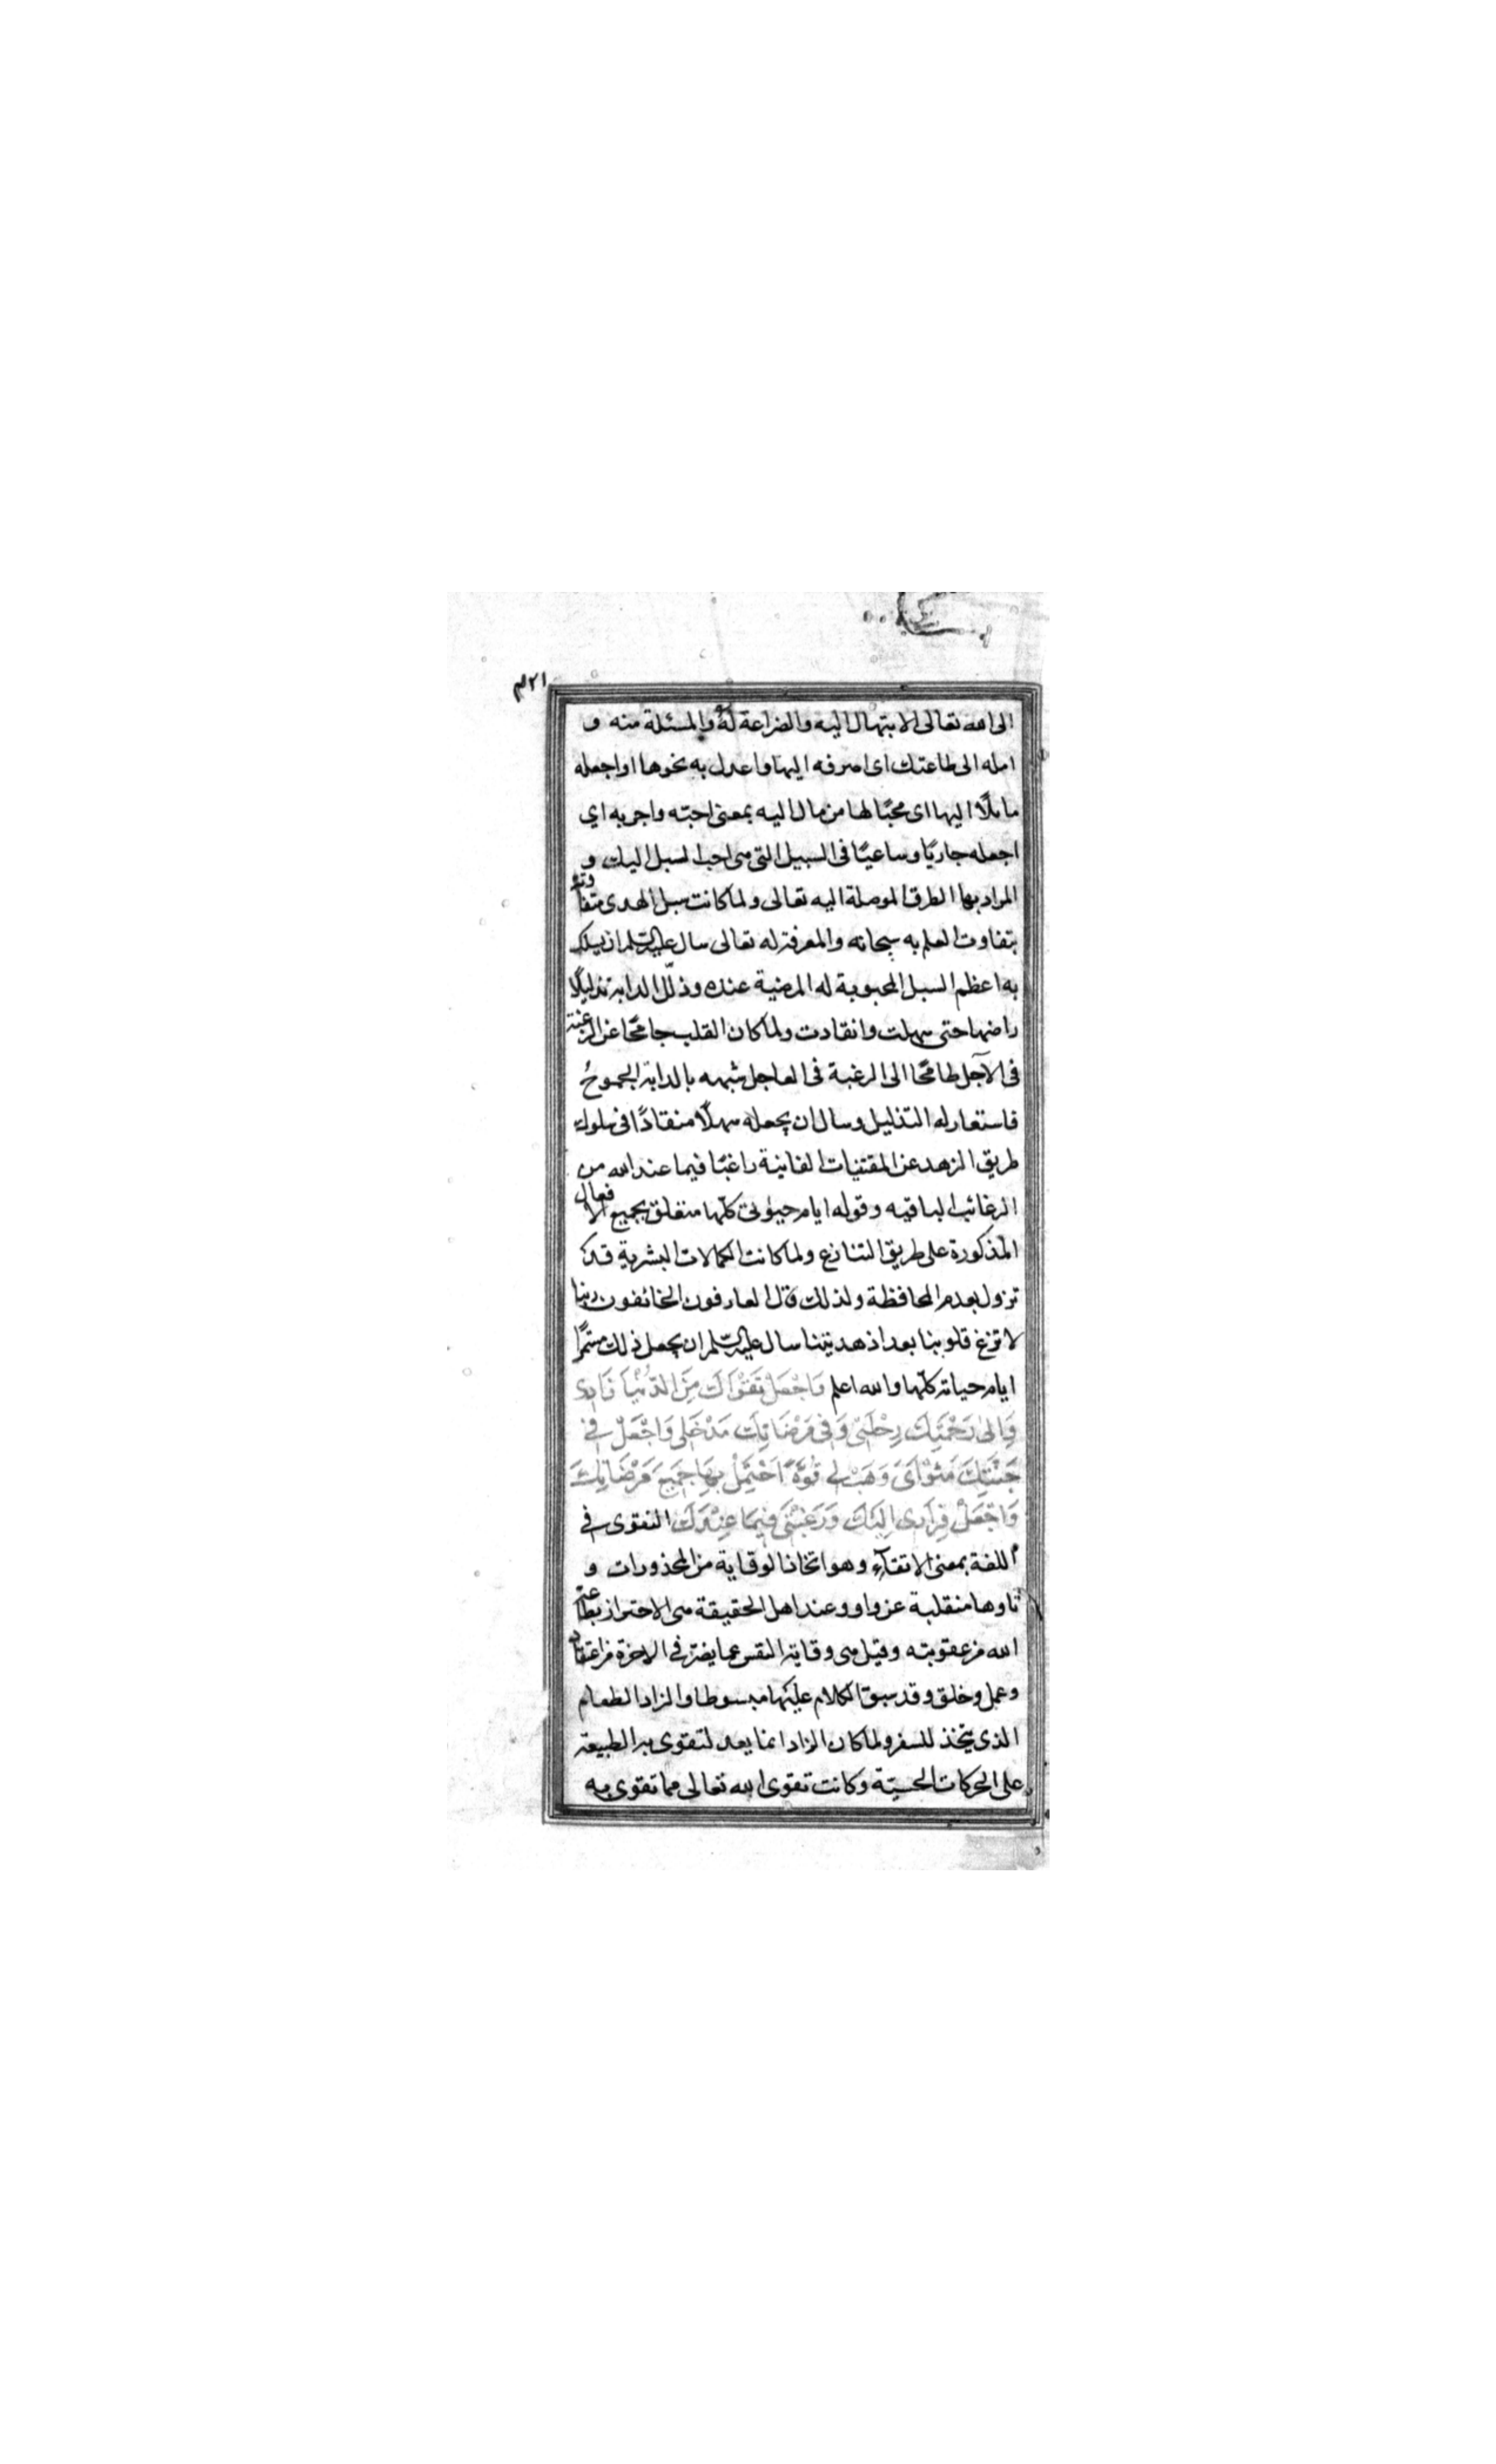 الى الله تعالى الابتهال اليه والضراعة له والمسئلة منه و
امله الى طاعتك اى اصرفه اليها واعدل به نحوها او اجعله
مائلًا اليها اى محبًا لها من مال اليه بمعنى احبّه واجر به اي
اجعله جاريًا وساعيًا فى السبيل التى هى احب السبل اليك و
المراد بها الطرق الموصلة اليه تعالى ولما كانت سبل الهدى متفاوتة
بتفاوت العلم به سبحانه والمعرفة له تعالى سال عليه السلم ان يسلك
به اعظم السبل المحبوبة له المرضية عنده وذلّل الدابة تذليلًا
راضها حتى سهلت وانقادت ولما كان القلب جامحًا عن الرغبة
فى الآجل طامحًا الى الرغبة فى العاجل شبهه بالدابة الجموحُ
فاستعار له التذليل وسال ان يجعله سهلًا منقادًا فى سلوك
طريق الزهد عن المقتنيات الفانية راغبًا فيما عند الله من
الرغائب الباقيه وقوله ايام حيوتى كلّها متعلق بجميع الافعال
المذكورة على طريق التنازع ولما كانت الكمالات البشرية قد
تزول بعدم المحافظة ولذلك قال العارفون الخائفون ربنا
لا تزغ قلوبنا بعد اذ هديتنا سال عليه السلم ان يجعل ذلك مستمرًّا
ايام حياته كلّها والله اعلم وَاجْعَلْ تَقْوَاكَ مِنَ الدُّنْيَا زَادِى
وَإِلىٰ رَحْمَتِكَ رِحْلَتِى وَفِى مَرْضَاتِكَ مَدْخَلِى وَاجْعَلْ فِى
جَنَّتِكَ مَثْوَاىَ وَهَبْ لِى قُوَّةً اَحْتَمِلُ بِهَا جَمِيعَ مَرْضَاتِكَ
وَاجْعَلْ فِرَارِى اِلَيْكَ وَرَغْبَتِى فِيمَا عِنْدَكَ التقوى فى
اللغة بمعنى الاتقآءِ وهو اتخاذ الوقاية من المحذورات و
تاوها منقلبة عن واو وعند اهل الحقيقة هى الاحتراز بطاعة
الله من عقوبته وقيل هى وقاية النفس عما يضر فى الاخرة من اعتقاد
وعمل وخلق وقد سبق الكلام عليها مبسوطا والزاد الطعام
الذى يتخذ للسفر ولما كان الزاد انما يعد لتقوى به الطبيعة
على الحركات الحسيّة وكانت تقوى الله تعالى مما تقوى به